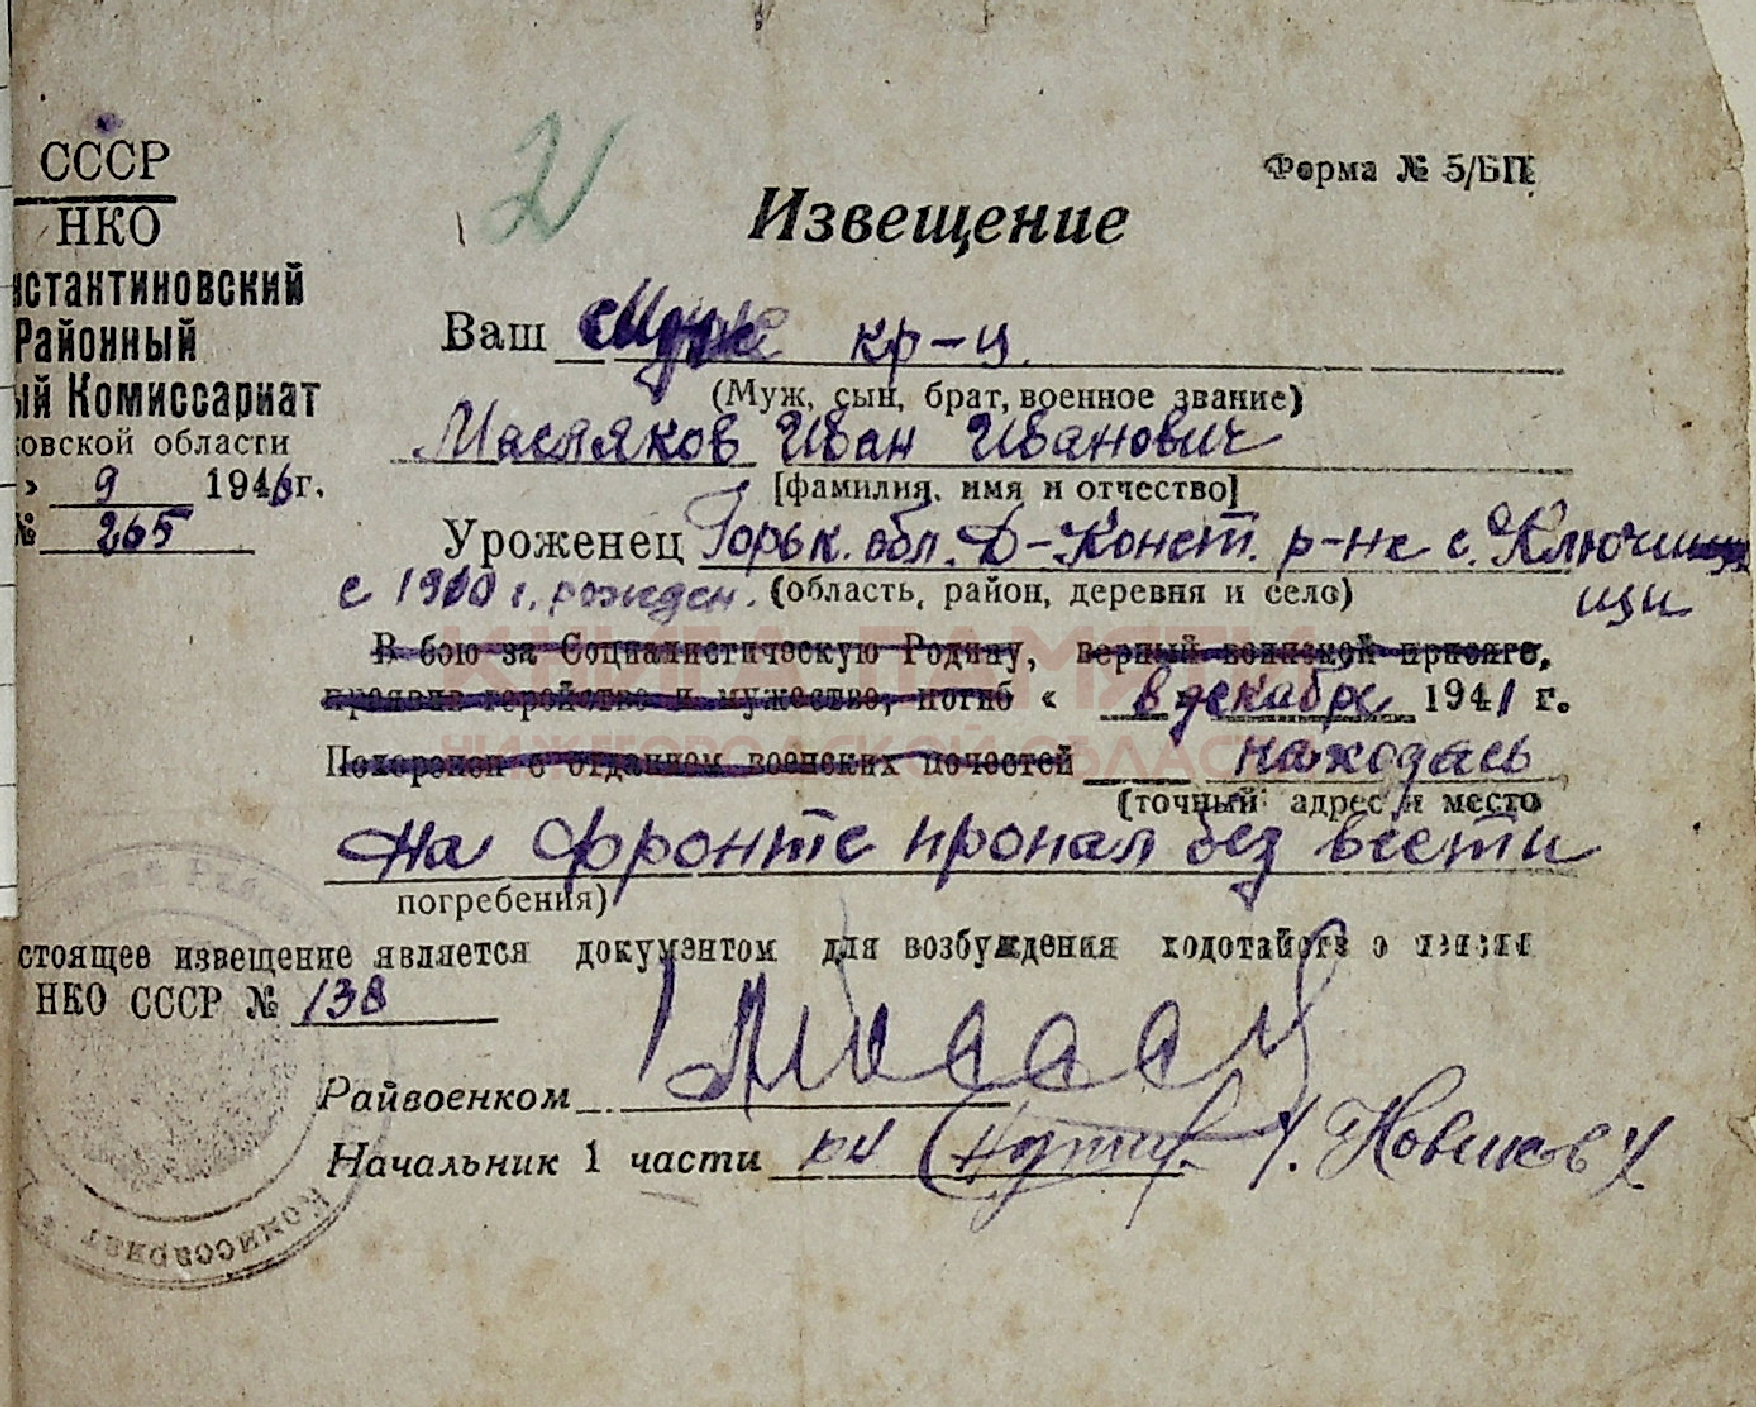 СССР
НКО
нстантиновский
Районный
ый Комиссариат
ковской области
» 9 1946г.
№ 265
Форма № 5/БП
Извещение
Ваш Муж кр-ц.
(Муж, сын, брат, военное звание)
Масляков Иван Иванович
[фамилия, имя и отчество]
Уроженец Горьк. обл. Д-Конст. р-на с. Ключи
щи
с 1910 г. рожден. (область, район, деревня и село)
В бою за Социалистическую Родину, верный воинской присяге,
проявив геройство и мужество, погиб « в декабре 1941 г.
Похоронен с отданием воинских почестей находясь
(точный адрес и место
на фронте пропал без вести
погребения)
стоящее извещение является документом для возбуждения ходотайств о пенсии
НКО СССР № 138
Райвоенком
Начальник 1 части Новиков
Комиссариат
КНИГА ПАМЯТИ
НИЖЕГОРОДСКОЙ ОБЛАСТИ